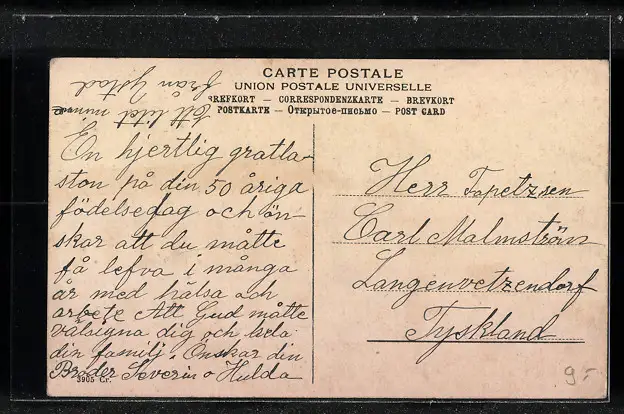 CARTE POSTALE
UNION POSTALE UNIVERSELLE
BREFKORT — CORRESPONDENZKARTE — BREVKORT
POSTKARTE — Открытое-письмо — POST CARD
Ett litet minne
från Ystad
En hjertlig gratla-
ston på din 50 åriga
födelsedag och ön-
skar att du måtte
få lefva i många
år med hälsa och
arbete Att Gud måtte
välsigna dig och hela
din familj. Önskar din
Broder Severin o Hulda
3905 Cr.
Herr Tapetzsen
Carl Malmström
Langenvetzendorf
Tyskland
9.-